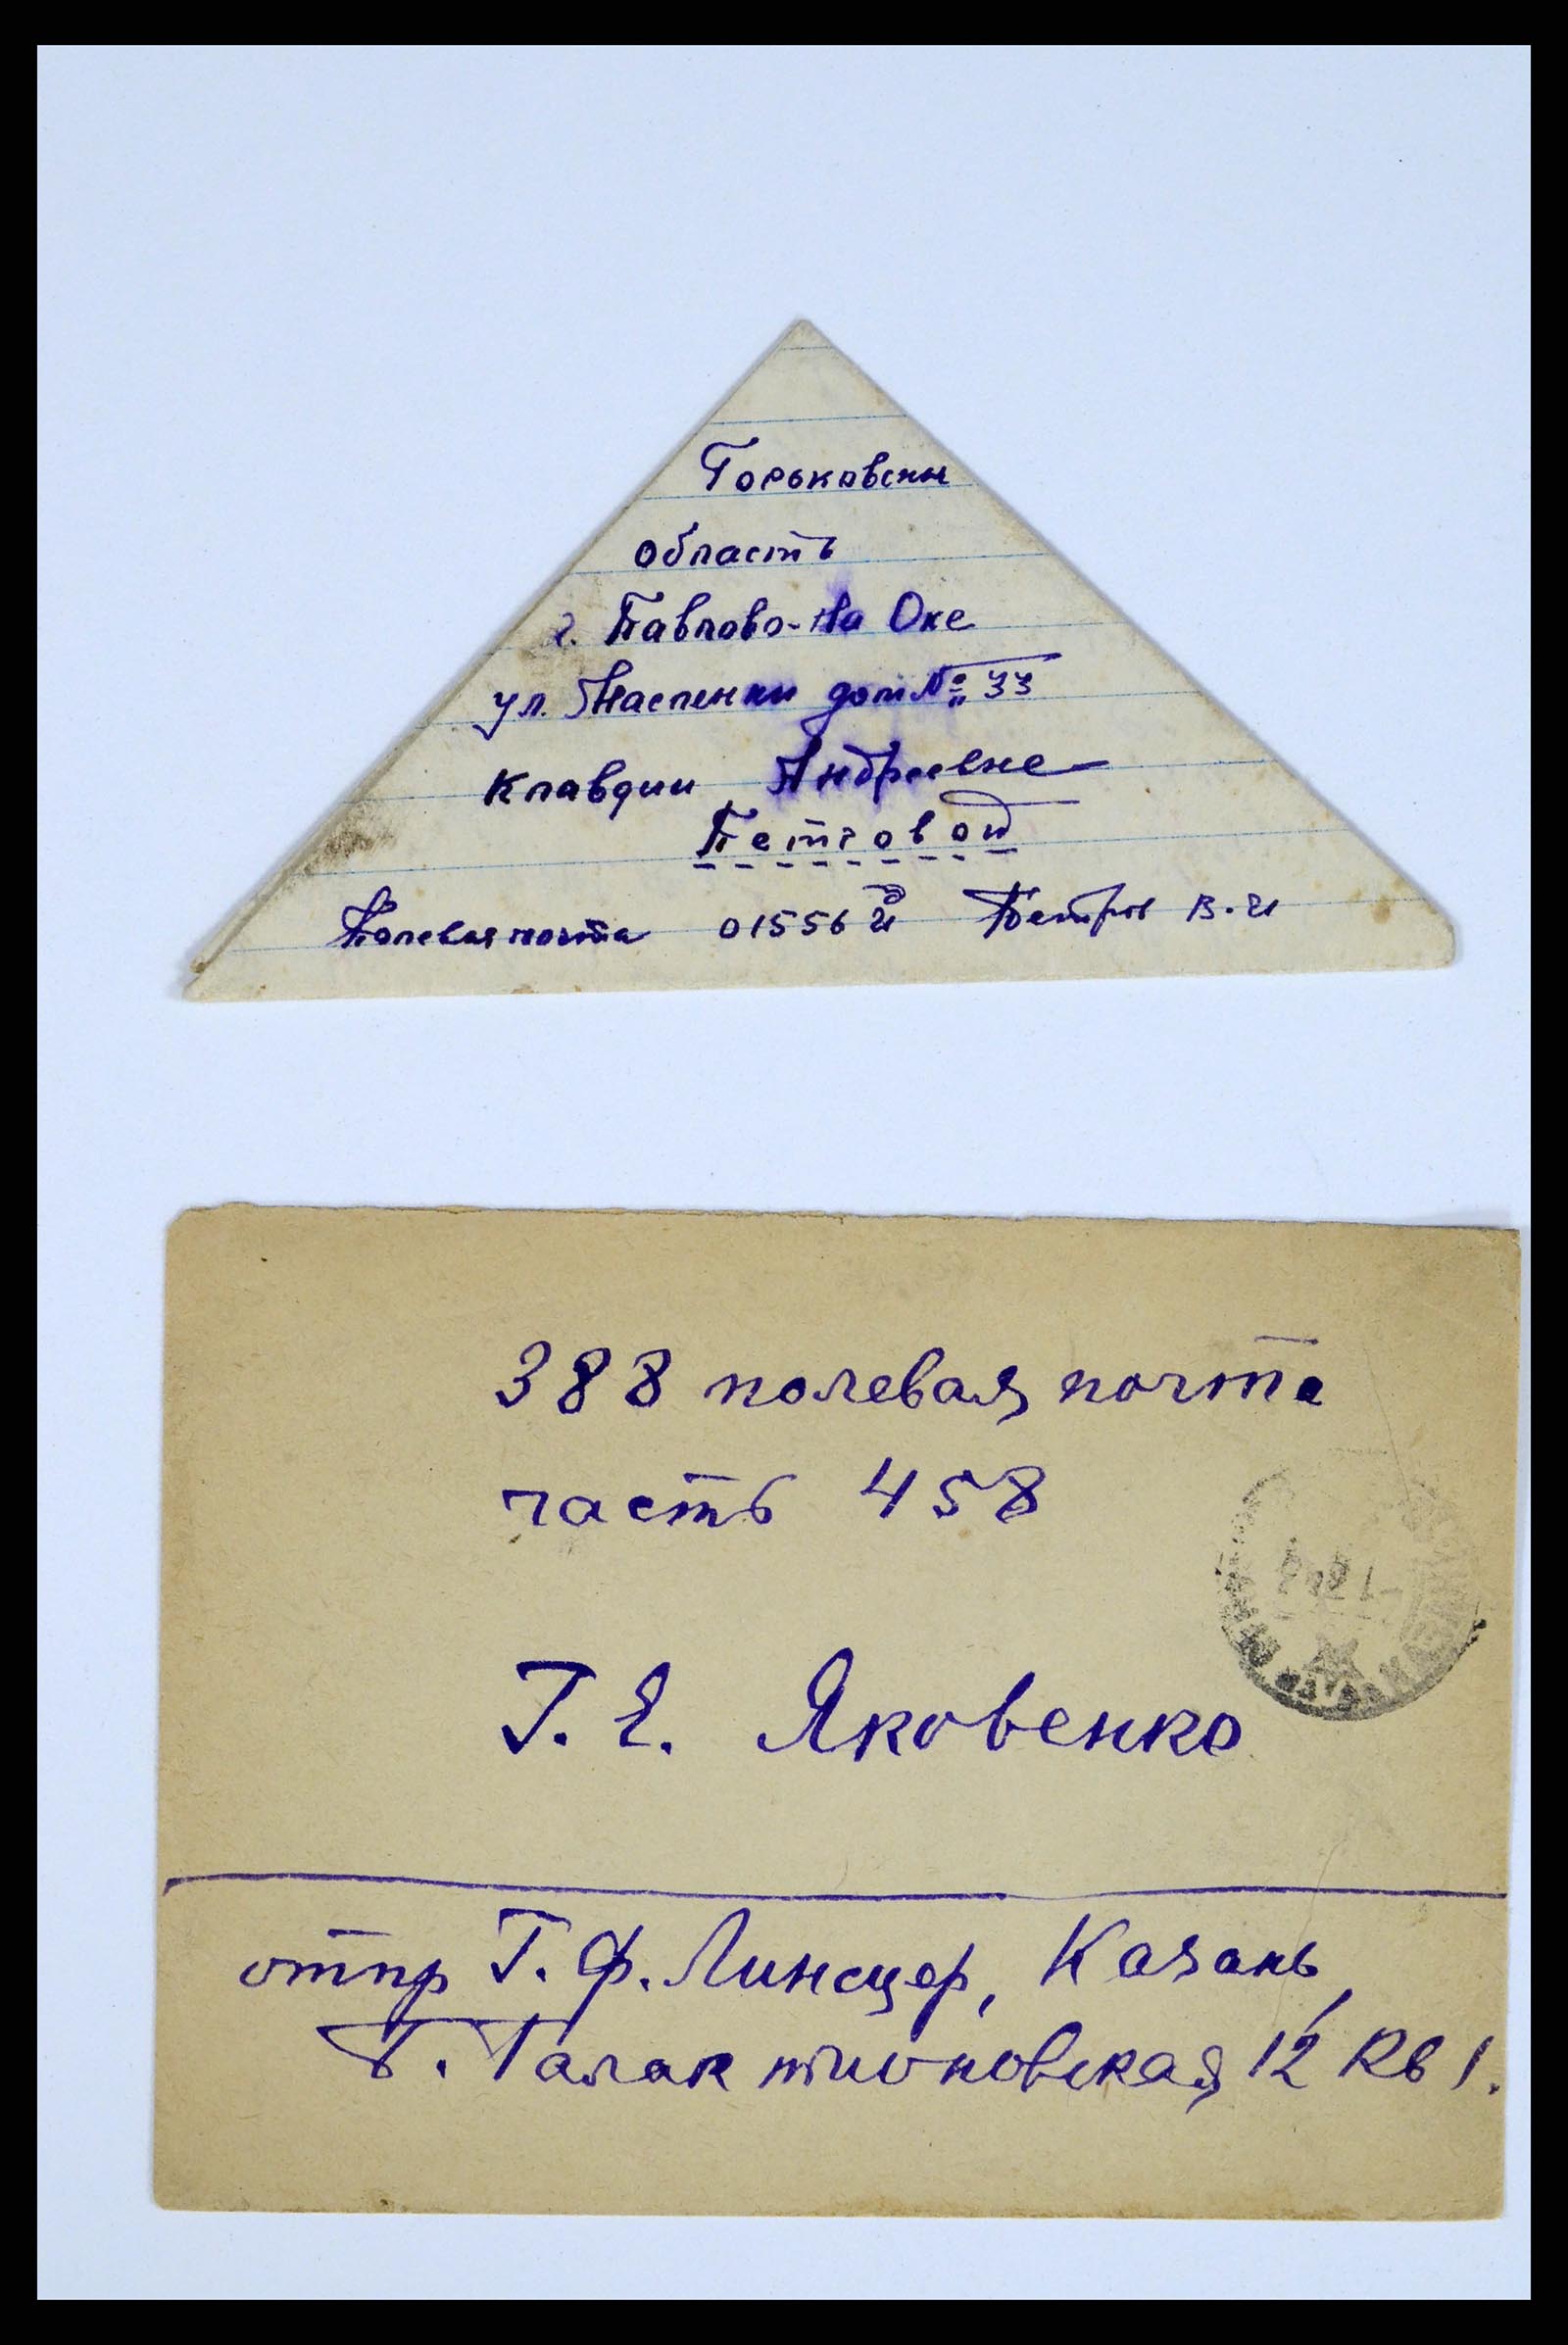 Горьковски
область
г. Павлово-на Оке
ул. Масленки дом № 33
Клавдии Андреевне
Петровой
Полевая почта 01556 И Петров В. И
388 полевая почта
часть 458
Г. Е. Яковенко
отпр Г. Ф. Линсцер, Казань,
Б. Галактионовская 12 Кв 1.